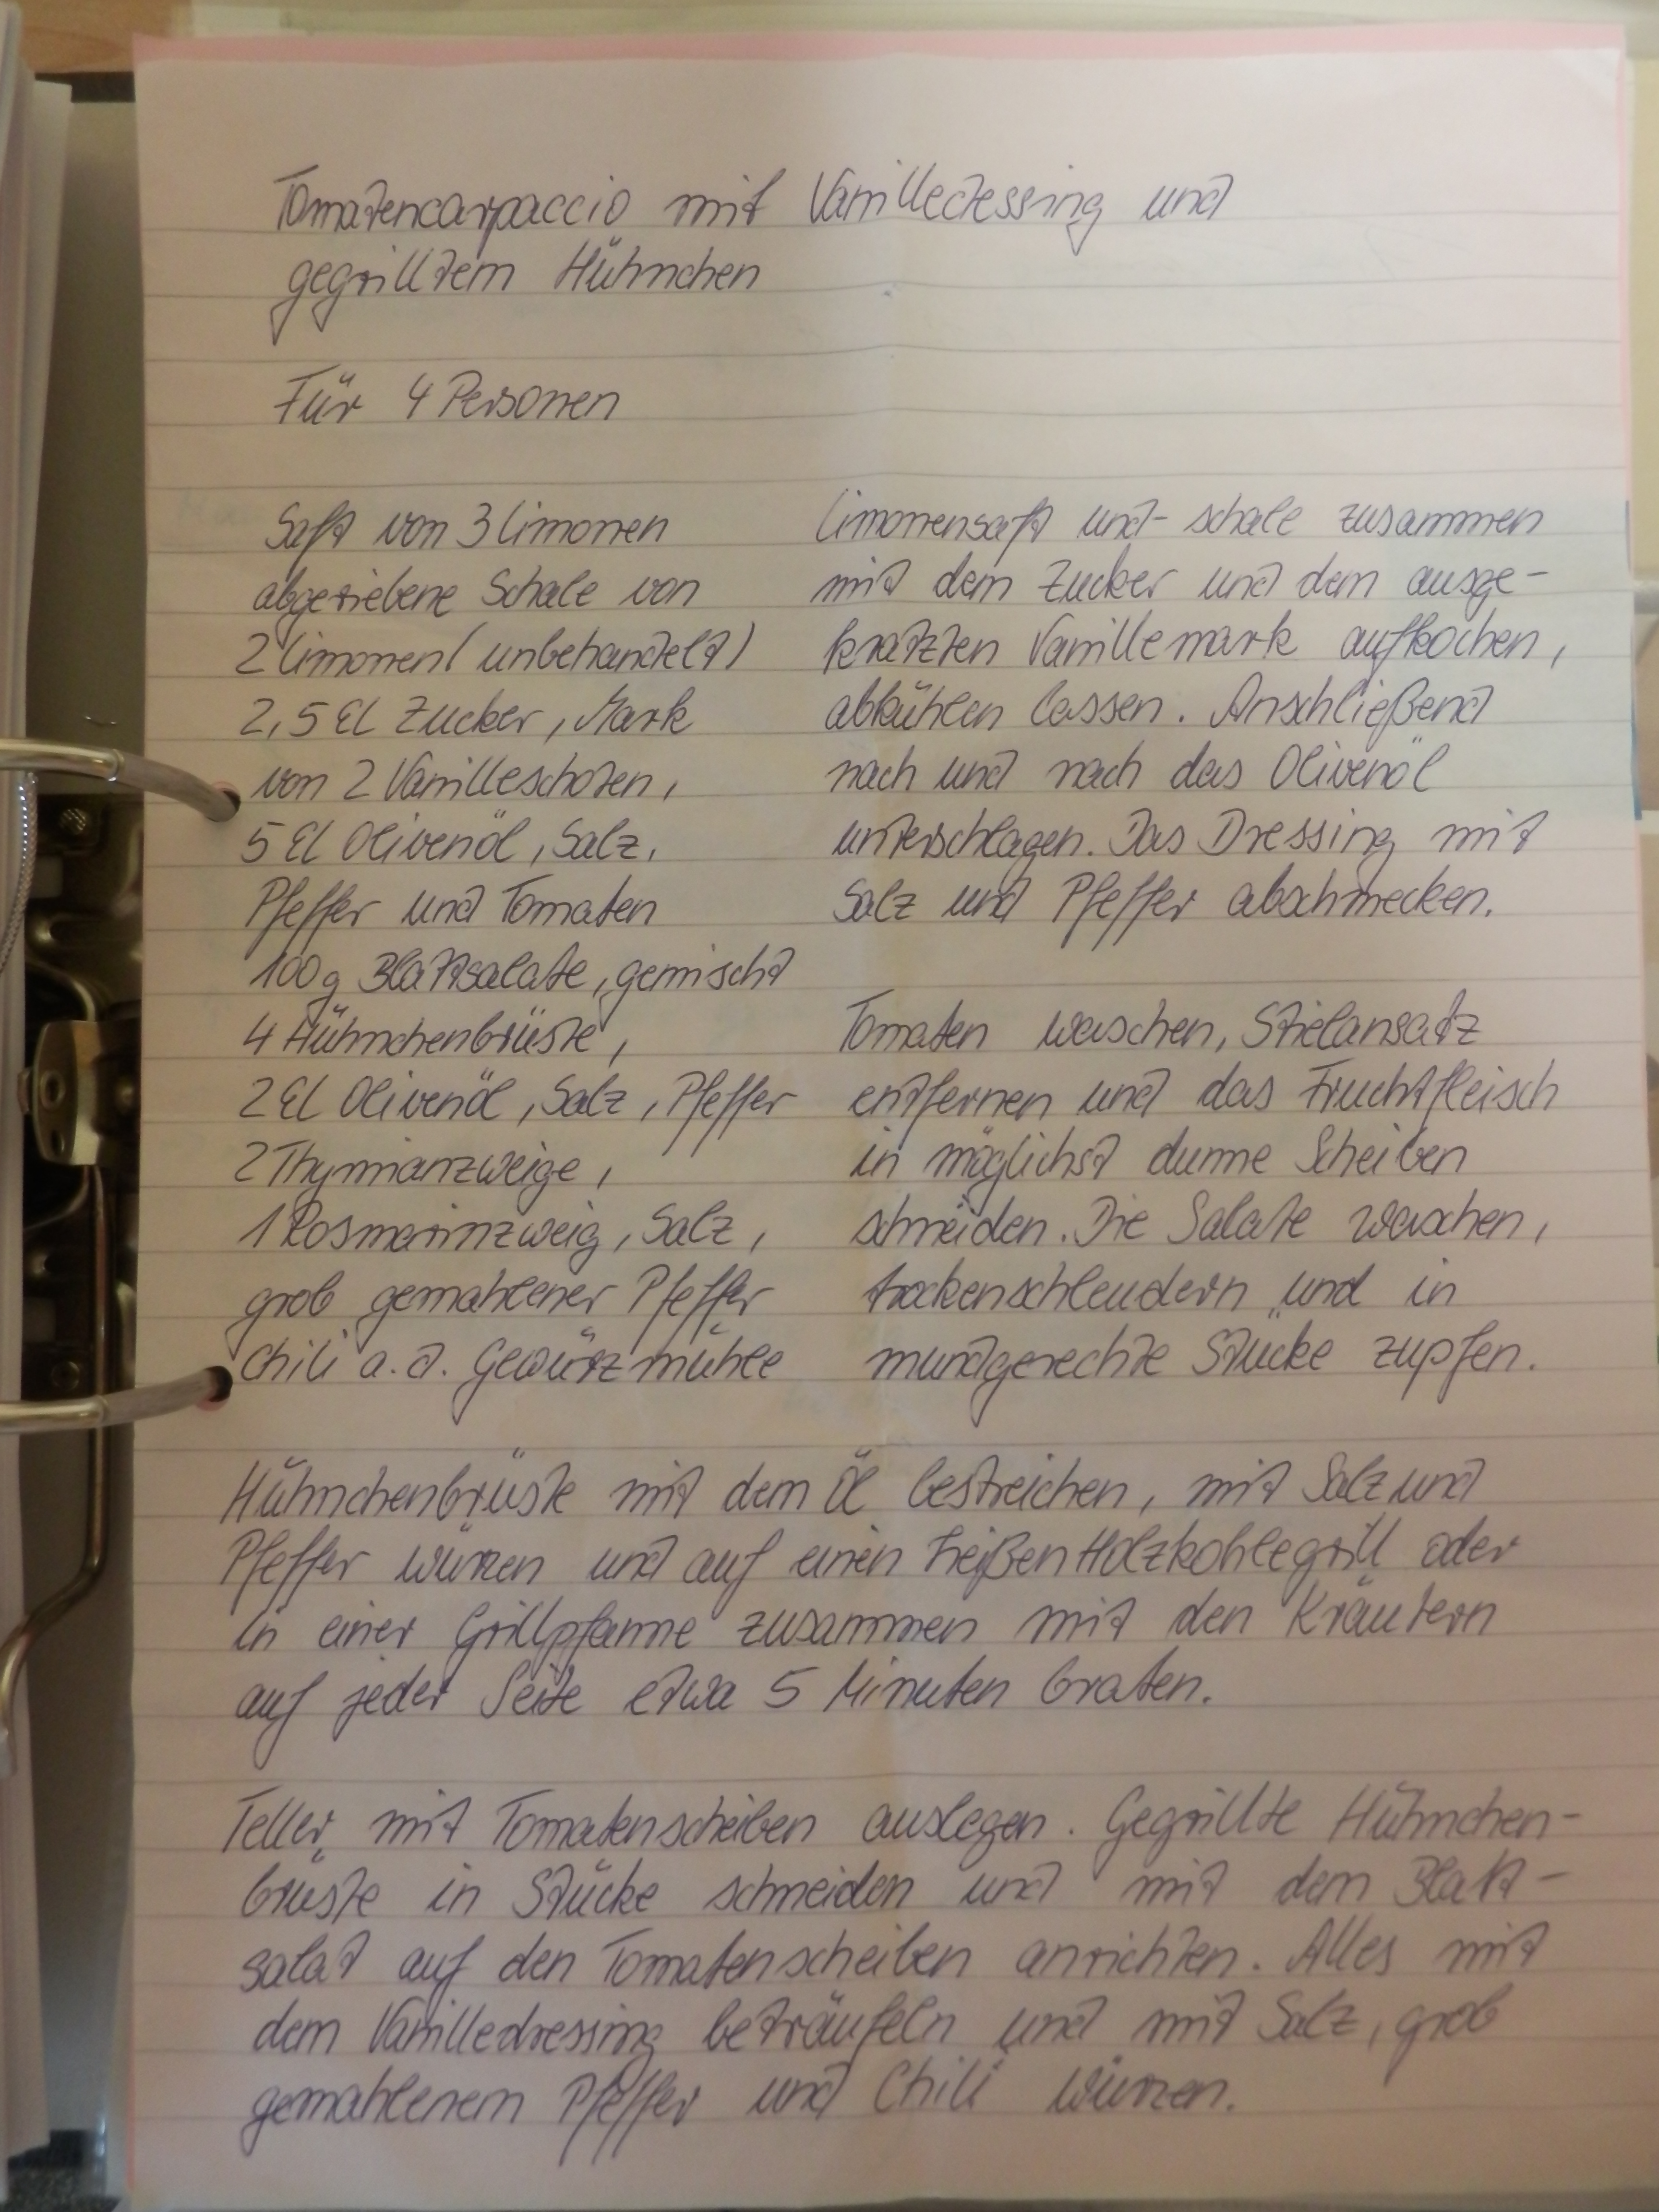 Tomatencarpaccio mit Vanilledessing und
gegrilltem Hühnchen
Für 4 Personen
Saft von 3 Limonen
abgeriebene Schale von
2 Limonen (unbehandelt)
2,5 El Zucker, Mark
von 2 Vanilleschoten,
5 El Olivenöl, Salz,
Pfeffer und Tomaten
100g Blattsalate, gemischt
4 Hühnchenbrüste,
2 El Olivenöl, Salz, Pfeffer
2 Thymianzweige,
1 Rosmarinzweig, Salz,
grob gemahlener Pfeffer
Chili a. d. Gewürzmühle
Limonensaft und -schale zusammen
mit dem Zucker und dem ausge-
kratzten Vanillemark aufkochen,
abkühlen lassen. Anschließend
nach und nach das Olivenöl
unterschlagen. Das Dressing mit
Salz und Pfeffer abschmecken.
Tomaten waschen, Stielansatz
entfernen und das Fruchtfleisch
in möglichst dünne Scheiben
schneiden. Die Salate waschen,
trockenschleudern und in
mundgerechte Stücke zupfen.
Hühnchenbrüste mit dem Öl bestreichen, mit Salz und
Pfeffer würzen und auf einen heißen Holzkohlegrill oder
in einer Grillpfanne zusammen mit den Kräutern
auf jeder Seite etwa 5 Minuten braten.
Teller mit Tomatenscheiben auslegen. Gegrillte Hühnchen-
brüste in Stücke schneiden und mit dem Blatt-
salat auf den Tomatenscheiben anrichten. Alles mit
dem Vanilledressing beträufeln und mit Salz, grob
gemahlenem Pfeffer und Chili würzen.